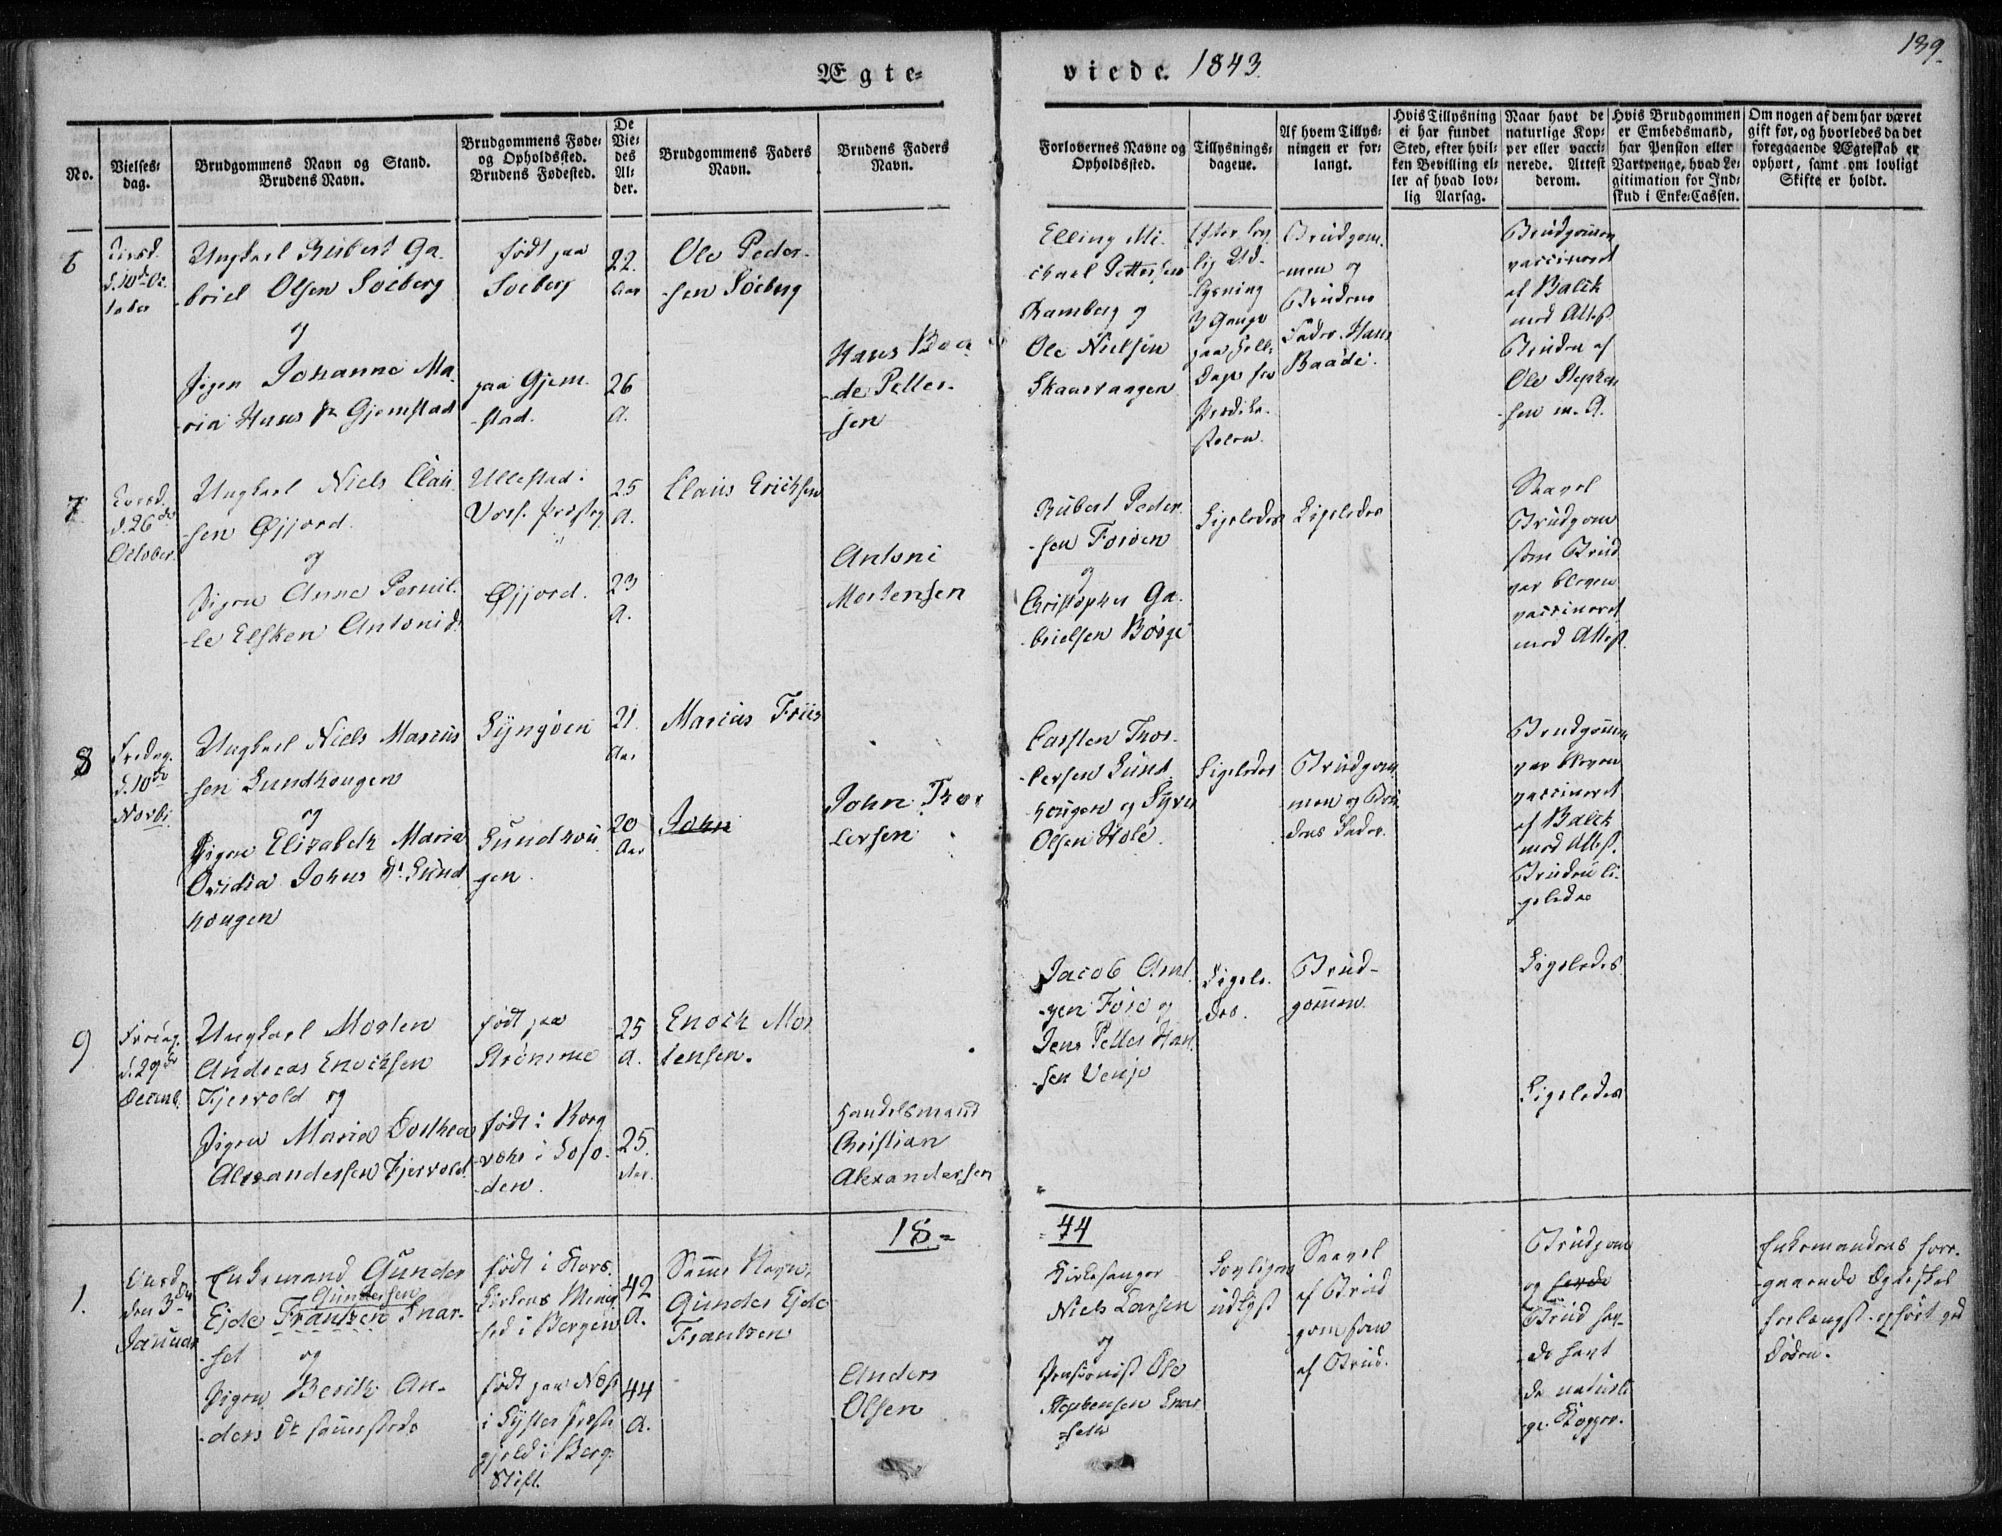 139.
Ægteviede. 1843.
No.
Vielsesdag.
Brudgommens Navn og Stand.
Brudens Navn.
Brudgommens Føde-
og Opholdssted.
Brudens Fødested.
De
Vie-
des
Al-
der.
Brudgommens Faders
Navn.
Brudens Faders
Navn.
Forlovernes Navne og
Opholdssted.
Tillysnings-
dagene.
Af hvem Tillys-
ningen er for-
langt.
Hvis Tillysning
ei har fundet
Sted, efter hvil-
ken Bevilling el-
ler af hvad lov-
lig Aarsag.
Naar havt de
naturlige Kop-
per eller vacci-
nerede. Attest
derom.
Hvis Brudgommen
er Embedsmand,
har Pension eller
Vartpenge, hvad Le-
gitimation for Ind-
skud i Enke-Cassen.
Om nogen af dem har været
gift før, og hvorledes da det
foregaaende Ægteskab er
ophørt, samt om lovligt
Skifte er holdt.
6
Tirsd.
d. 10de Oc-
tober
Ungkarl Rubert Ga-
briel Olsen Soeberg
og
Pigen Johanne Ma-
ria Hans Dr Gjemstad
født paa
Soeberg
paa Gjem-
stad.
22.
Aar
26
A.
Ole Peder-
sen Söeberg
Hans Baa-
de Petter-
sen
Elling Mi-
chael Pettersen
Ramberg og
Ole Nielsen
Skaarvaagen
Efter lov-
lig Ud-
lysning
3 Gange
paa Hell-
Dage fra
Prædike-
stolen.
Brudgom-
men og
Brudens
Fader Hans
Baade.
Brudgommen
vaccineret
af Balck
med Attest
Bruden af
Ole Stephen-
sen m. A.
7.
Torsd.
d. 26de
October.
Ungkarl Niels Clau-
sen Øjjord.
og
Pigen Anne Pernil-
le Elsken Antonid.
Ullestad i
Vos. Præsteg.
Øjjord.
25
A.
23
A.
Claus Erichsen
Antoni
Mortensen
Rubert Peder-
sen Forøen
og
Christopher Ga-
brielsen Börge
Ligeledes
Ligeledes
Saavel
Brudgom
som Brud
var bleven
vaccineret
med Attest.
8
Fredag.
d. 10de
Novbr.
Ungkarl Niels Marius-
sen Sundhougen
og
Pigen Elizabeth Maria
Ovidia Johns Dr. Sund-
hougen
Lyngöen
Sundhou-
gen.
21.
Aar
20
Aar
Marius Friis
John
John Thor-
lersen
Carsten Thor-
lersen Sund-
hougen og Syver
Olsen Hole.
Ligeledes
Brudgom-
men og Bru-
dens Fader.
Brudgommen
var bleven
vaccineret
af Balck
med Attest.
Bruden li-
geledes
9
Fredag.
d. 29de
Decemb.
Ungkarl Morten
Andreas Enochsen
Fjervold og
Pigen Maria Dorthea
Alexandersen Fjervold.
født paa
Strömme
født i Borg-
vær i Lofo-
den.
25
A.
25.
Aar.
Enoch Mor-
tensen.
Handelsmand
Christian
Alexandersen
Jacob Arnt-
zen Före og
Jens Petter Han-
sen Vensjo
Ligele-
des.
Brud-
gommen.
Ligeledes
Ligeledes
18=
=44
1.
Onsd.
den 3die
Januar
Enkemand Gunder
Gundersen
Ejde Frantzen Snar-
set og
Pigen Berith An-
ders Dr sammesteds
født i Kors-
kirkens Menig-
hed i Bergen
født paa Næs
i Lyster Præste-
gjeld i Berg.
Stift.
42
A.
44
A.
Samme Navn,
Gunder Ejde
Frantzen
Anders
Olsen
Kirkesanger
Niels Larsen
og
Pensionist Ole
Stephensen Snar-
seth
Lovligen
udlyst
Saavel
af Brud-
gom som
af Brud.
Brudgom
og
Brud hav-
de havt
de naturli-
ge Kopper.
Enkemandens fore-
gaaende Egteskab
forlængst ophört ved
Döden.